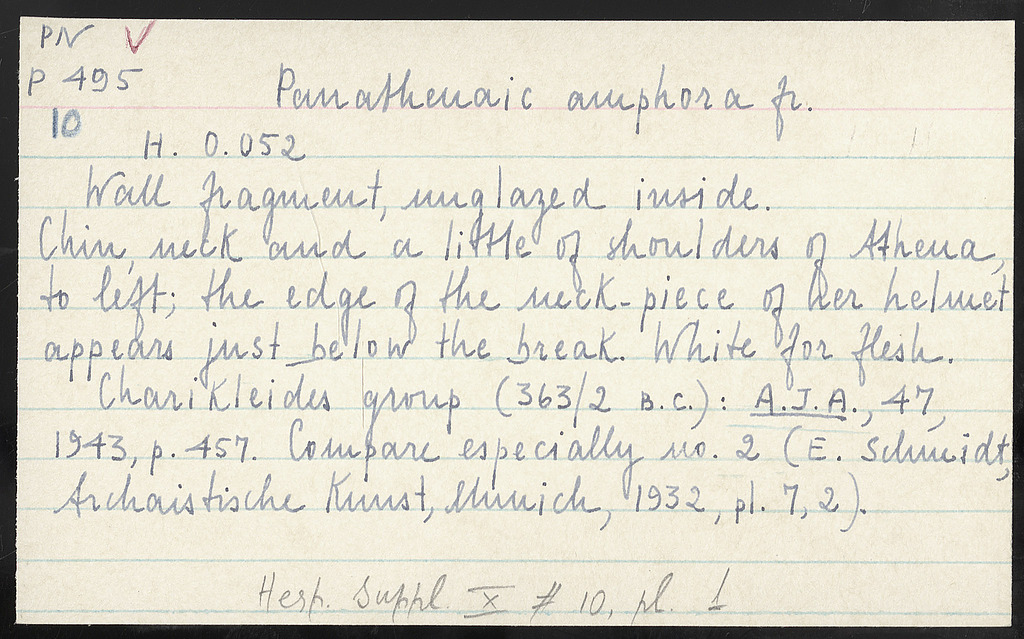 PN V
P 495
Panathenaic amphora fr.
10
H. 0.052
Wall fragment, unglazed inside.
Chin, neck and a little of shoulders of Athena,
to left; the edge of the neck-piece of her helmet
appears just below the break. White for flesh.
Charikleides group (363/2 B.C.): A.J.A., 47,
1943, p. 457. Compare especially no. 2 (E. Schmidt,
Archaistische Kunst, Munich, 1932, pl. 7, 2).
Hesp. Suppl. X # 10, pl. 1